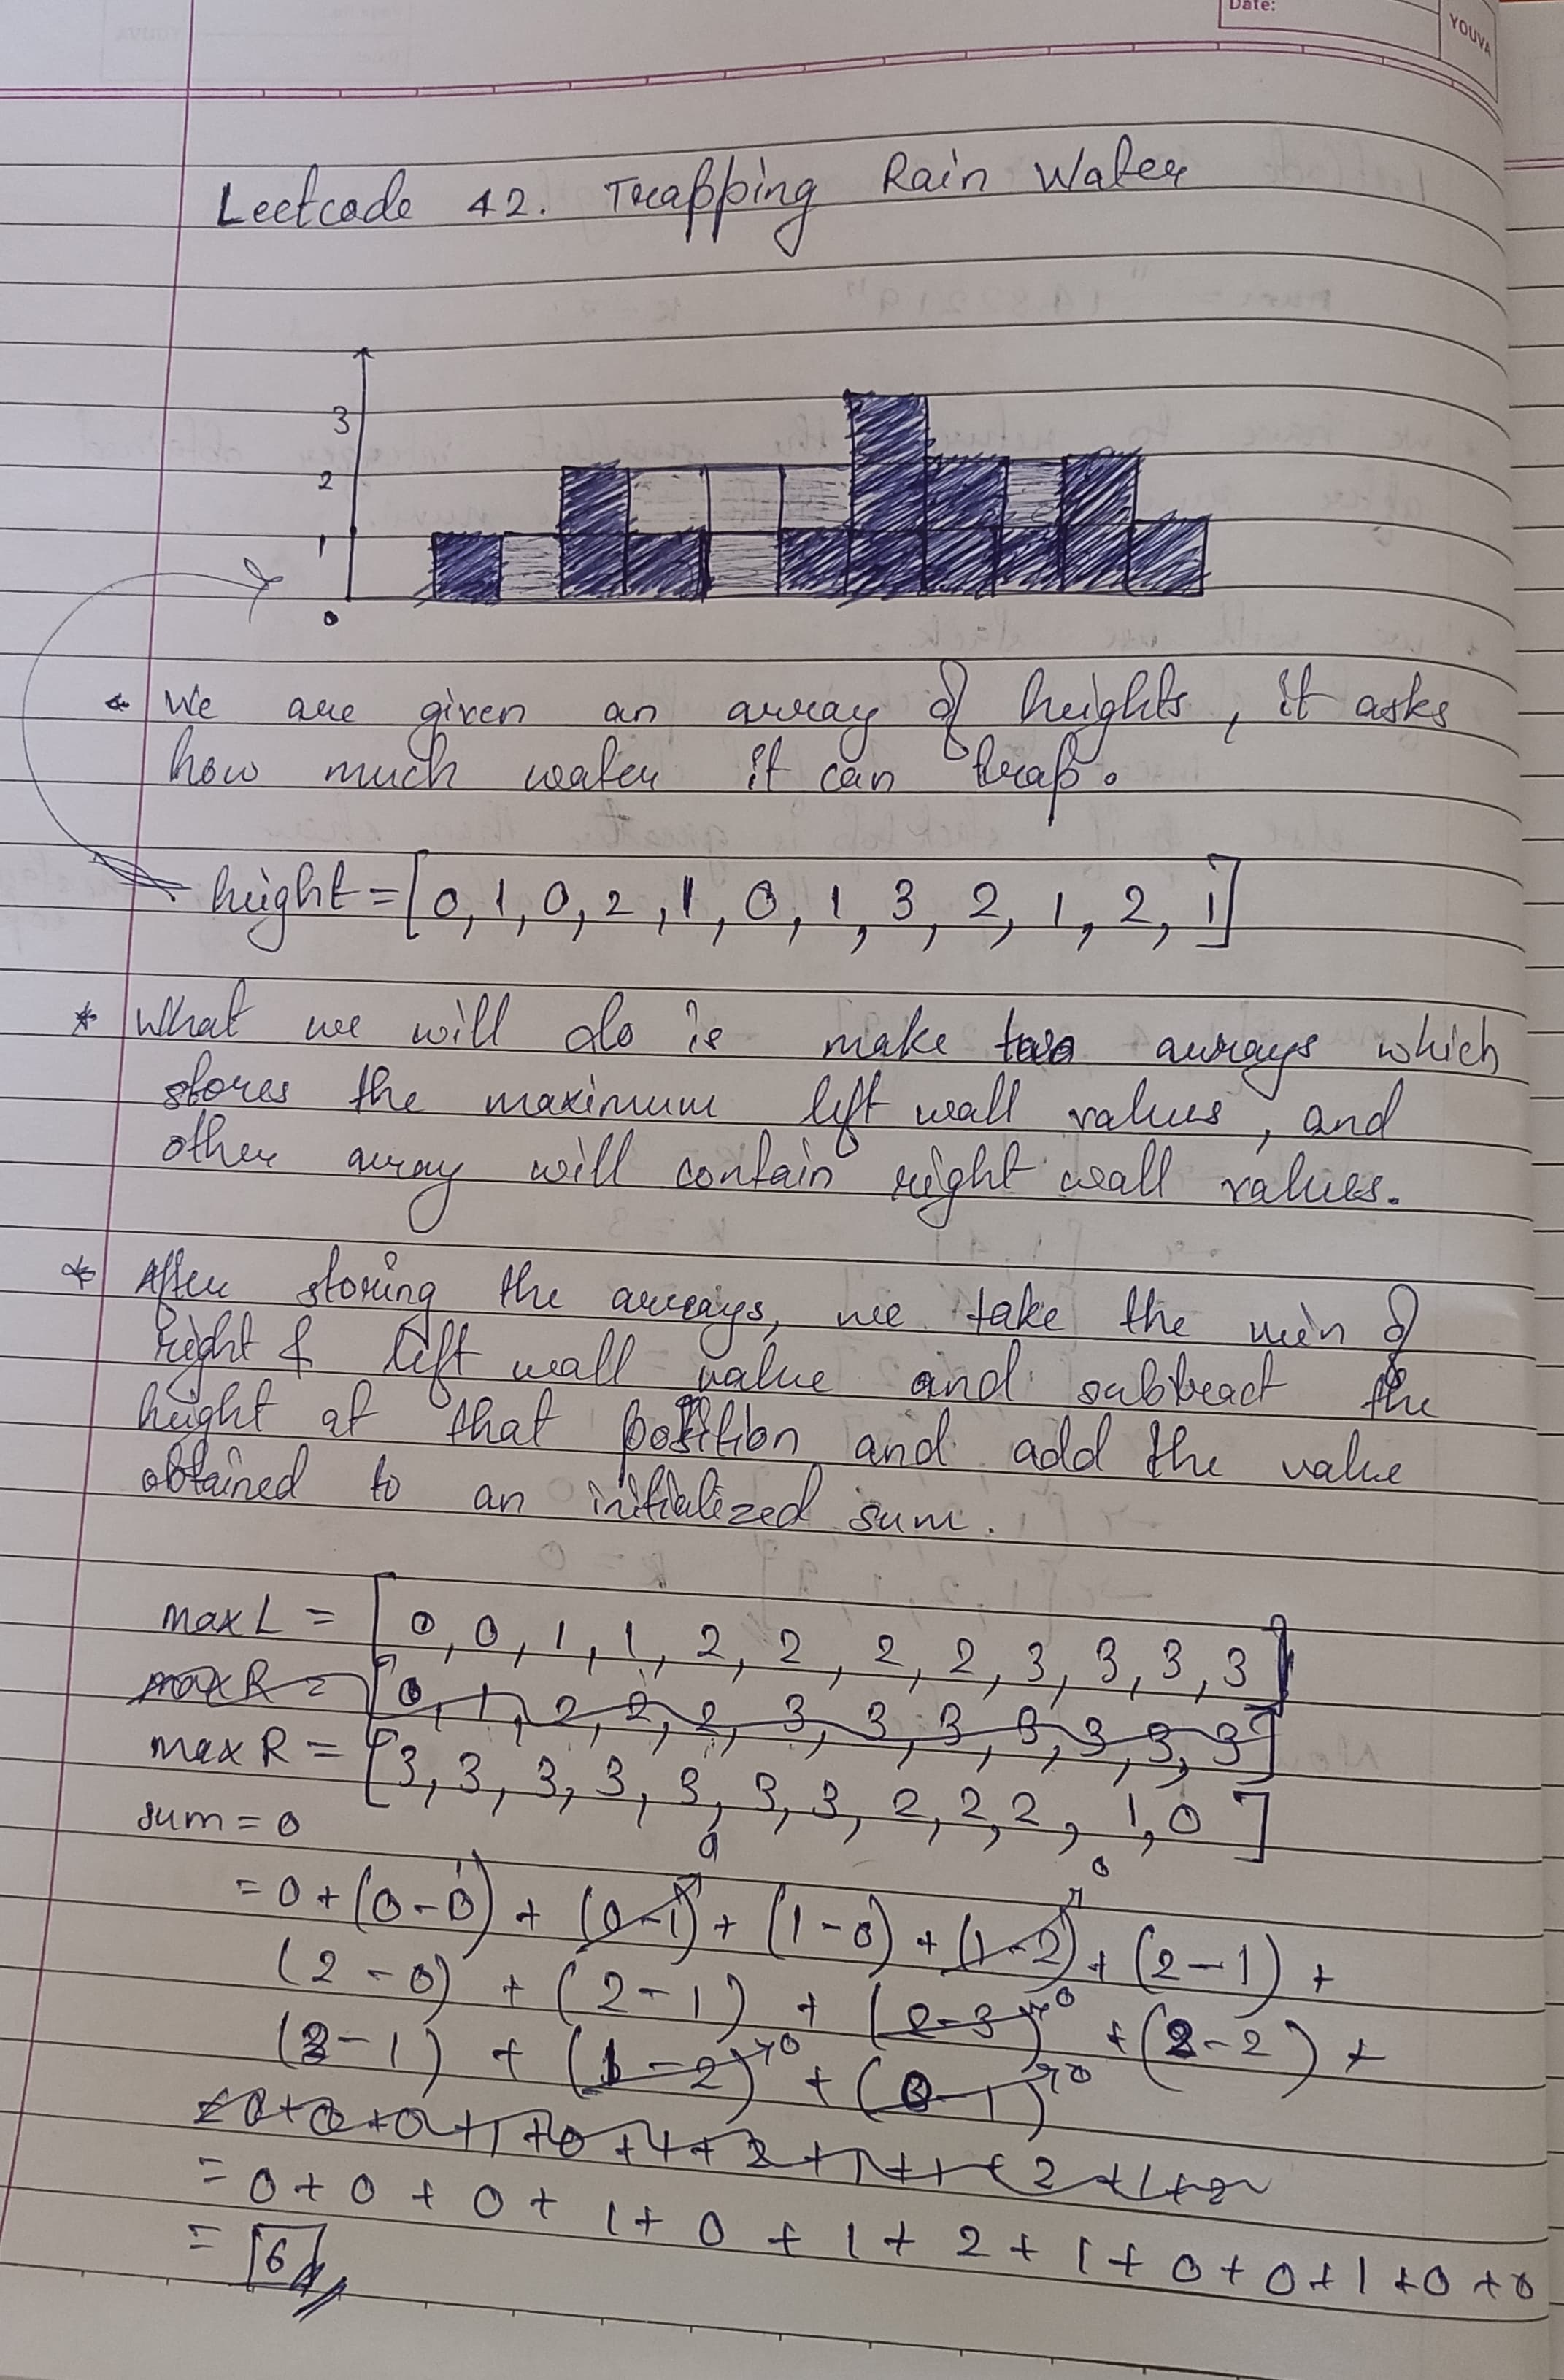 Date:
YOUVA
Leetcode 42. Trapping Rain Water
3
2
1
0
* We are given an array of heights, it asks
how much water it can trap.
height = [0, 1, 0, 2, 1, 0, 1, 3, 2, 1, 2, 1]
* What we will do is make two arrays which
stores the maximum left wall values, and
other array will contain right wall values.
* After storing the arrays, we take the min of
right & left wall value and subtract the
height at that position and add the value
obtained to an initialized sum.
max L = [0, 0, 1, 1, 2, 2, 2, 2, 3, 3, 3, 3]
max R = [0, 1, 2, 2, 2, 3, 3, 3, 3, 3, 3, 3]
max R = [3, 3, 3, 3, 3, 3, 3, 2, 2, 2, 1, 0]
sum = 0
= 0 + (0 - 0) + (0 - 1) 0 + (1 - 0) + (1 - 2) 0 + (2 - 1) +
(2 - 0) + (2 - 1) + (2 - 3) 0 + (2 - 2) +
(2 - 1) + (1 - 2) 0 + (0 - 1) 0
= 0 + 0 + 0 + 1 + 0 + 1 + 2 + 1 + 0 + 0 + 1 + 0 + 0
= 6